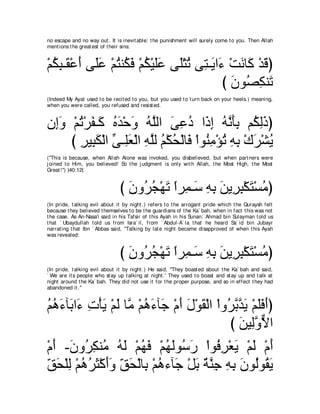 no escape and no way out. It is inevitable: the punishment will surely come to you. Then Allah
mentions the greatest of their sins:
قَدْ كَانَتْ ءَايَـتِى تُتْلَى عَلَيْكُمْ فَكُنتُمْ عَلَى أَعْقَـبِكُمْ
تَنكِصُونَ )
(Indeed My Ayat used to be recited to you, but you used to turn back on your heels.) meaning,
when you were called, you refused and resisted.
(ذَلِكُم بِأَنَّهُ إِذَا دُعِىَ اللَّهُ وَحْدَهُ كَـفَرْتُمْ وَإِن
يُشْرَكْ بِهِ تُؤْمِنُواْ فَالْحُكْمُ للَّهِ الْعَلِـىِّ الْكَبِيرِ )
("This is because, when Allah Alone was invoked, you disbelieved, but when partners were
joined to Him, you believed! So the judgment is only with Allah, the Most High, the Most
Great!") [40:12]
(مُسْتَكْبِرِينَ بِهِ سَـمِراً تَهْجُرُونَ )
(In pride, talking evil about it by night.) refers to the arrogant pride which the Quraysh felt
because they believed themselves to be the guardians of the Ka`bah, when in fact this was not
the case. As An-Nasa'i said in his Tafsir of this Ayah in his Sunan: Ahmad bin Sulayman told us
that `Ubaydullah told us from Isra'il, from `Abdul-A`la that he heard Sa`id bin Jubayr
narrating that Ibn `Abbas said, "Talking by late night became disapproved of when this Ayah
was revealed:
(مُسْتَكْبِرِينَ بِهِ سَـمِراً تَهْجُرُونَ )
(In pride, talking evil about it by night.) He said, "They boasted about the Ka`bah and said,
`We are its people who stay up talking at night.' They used to boast and stay up and talk at
night around the Ka`bah. They did not use it for the proper purpose, and so in effect they had
abandoned it."
(أَفَلَمْ يَدَّبَّرُواْ الْقَوْلَ أَمْ جَآءَهُمْ مَّا لَمْ يَأْتِ ءَابَآءَهُمُ
الاٌّوَّلِينَ )
أَمْ لَمْ يَعْرِفُواْ رَسُولَهُمْ فَهُمْ لَهُ مُنكِرُونَ- أَمْ
يَقُولُونَ بِهِ جِنَّةٌ بَلْ جَآءَهُمْ بِالْحَقِّ وَأَكْثَرُهُمْ لِلْحَقِّ